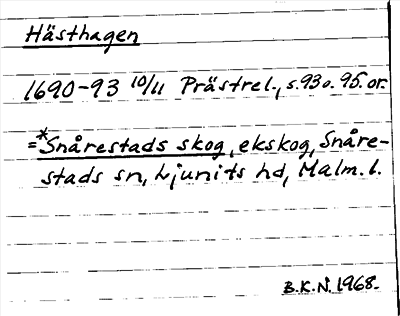 Hästhagen
1690-93 10/11 Prästrel., s.93 o. 95. or.
=*Snårestads skog, ekskog, Snåre-
stads sn, Ljunits hd, Malm. l.
B.K.N. 1968.